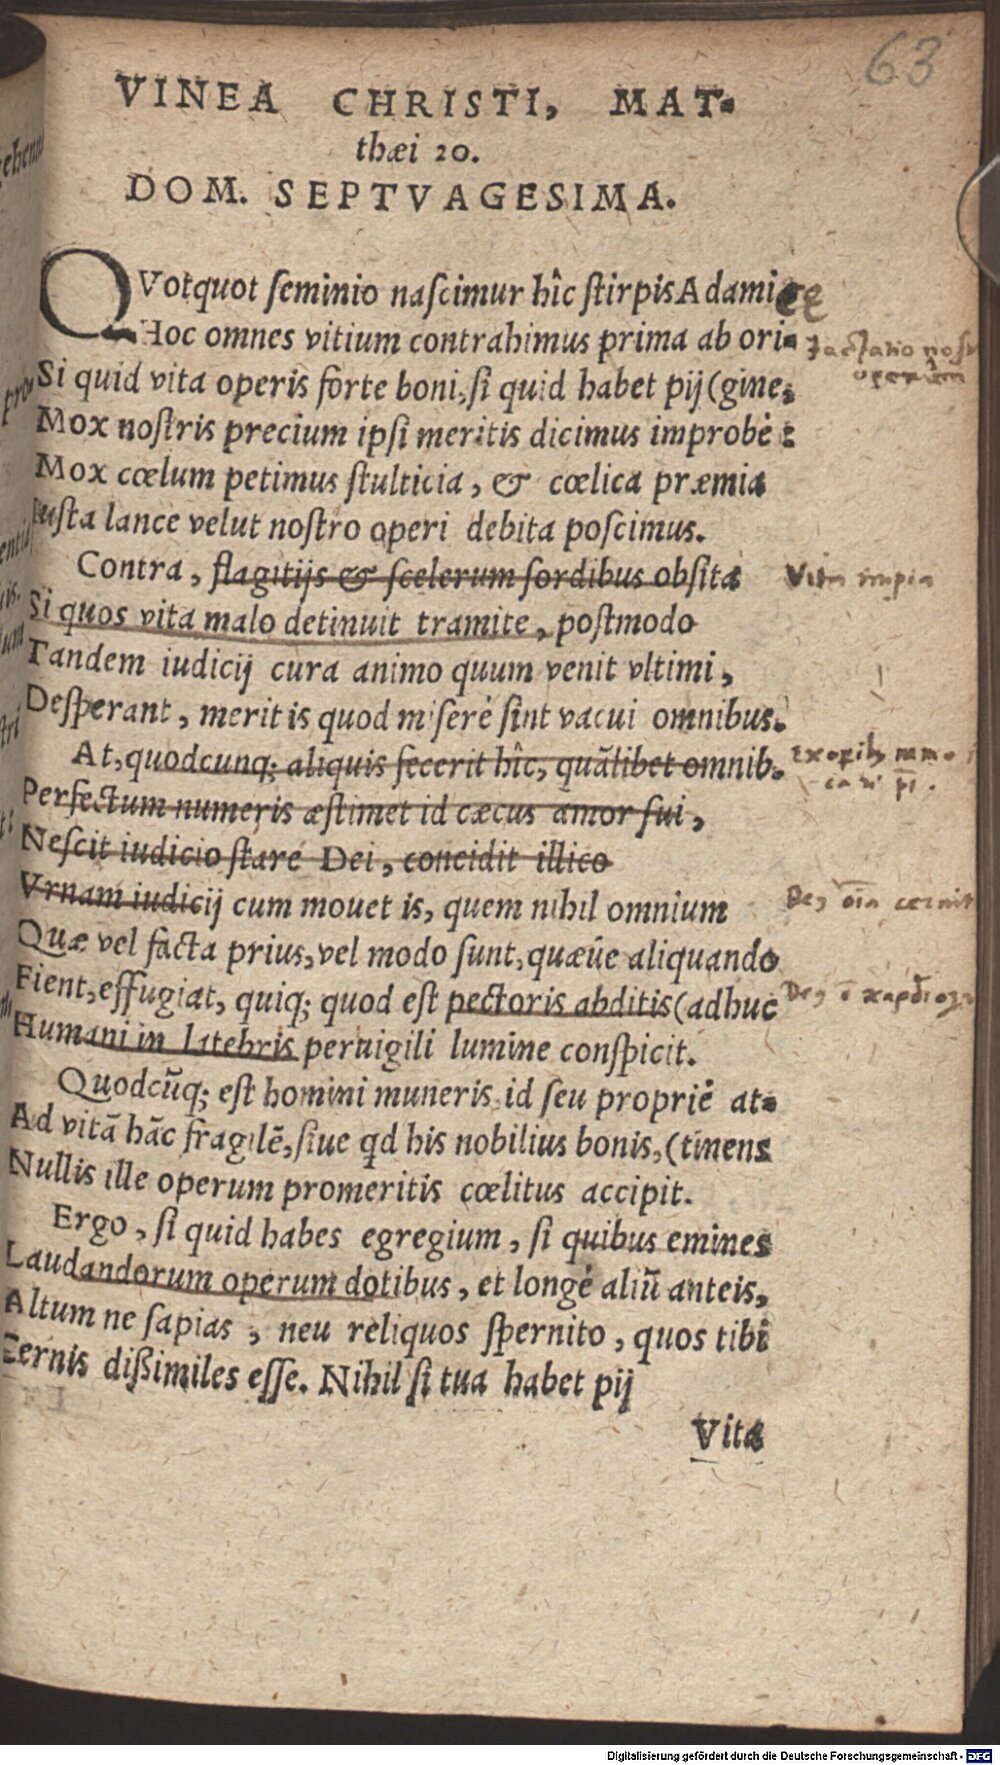 63
VINEA CHRISTI, MAT-
thæi 20.
DOM. SEPTVAGESIMA.
QVotquot ſeminio naſcimur hîc ſtirpis Adamicæ
Hoc omnes vitium contrahimus prima ab ori-
Si quid vita operis forte boni, ſi quid habet pij (gine,
Mox noſtris precium ipſi meritis dicimus improbè :
Mox cœlum petimus ſtulticia, & cœlica præmia
Iuſta lance velut noſtro operi debita poſcimus.
Contra, flagitijs & ſcelerum ſordibus obſita
Si quos vita malo detinuit tramite, poſtmodo
Tandem iudicij cura animo quum venit vltimi,
Deſperant, meritis quod miſerè ſint vacui omnibus.
At, quodcunq; aliquis fecerit hîc, quãlibet omnib.
Perfectum numeris æſtimet id cæcus amor ſui,
Neſcit iudicio ſtare Dei, concidit illico
Vrnam iudicij cum mouet is, quem nihil omnium
Quæ vel facta prius, vel modo ſunt, quæûe aliquando
Fient, effugiat, quiq; quod eſt pectoris abditis (adhuc
Humani in latebris peruigili lumine conſpicit.
Quodcũq; eſt homini muneris id ſeu propriè at-
Ad vitã hãc fragilẽ, ſiue qd his nobilius bonis, (tinens
Nullis ille operum promeritis cœlitus accipit.
Ergo, ſi quid habes egregium, ſi quibus emines
Laudandorum operum dotibus, et longè aliũ anteis,
Altum ne ſapias, neu reliquos ſpernito, quos tibi
Cernis dißimiles eſſe. Nihil ſi tua habet pij
Vita
Jactatio noſtr
operum
Vita impia
Deus oīa cernit
Digitalisierung gefördert durch die Deutsche Forschungsgemeinschaft - DFG